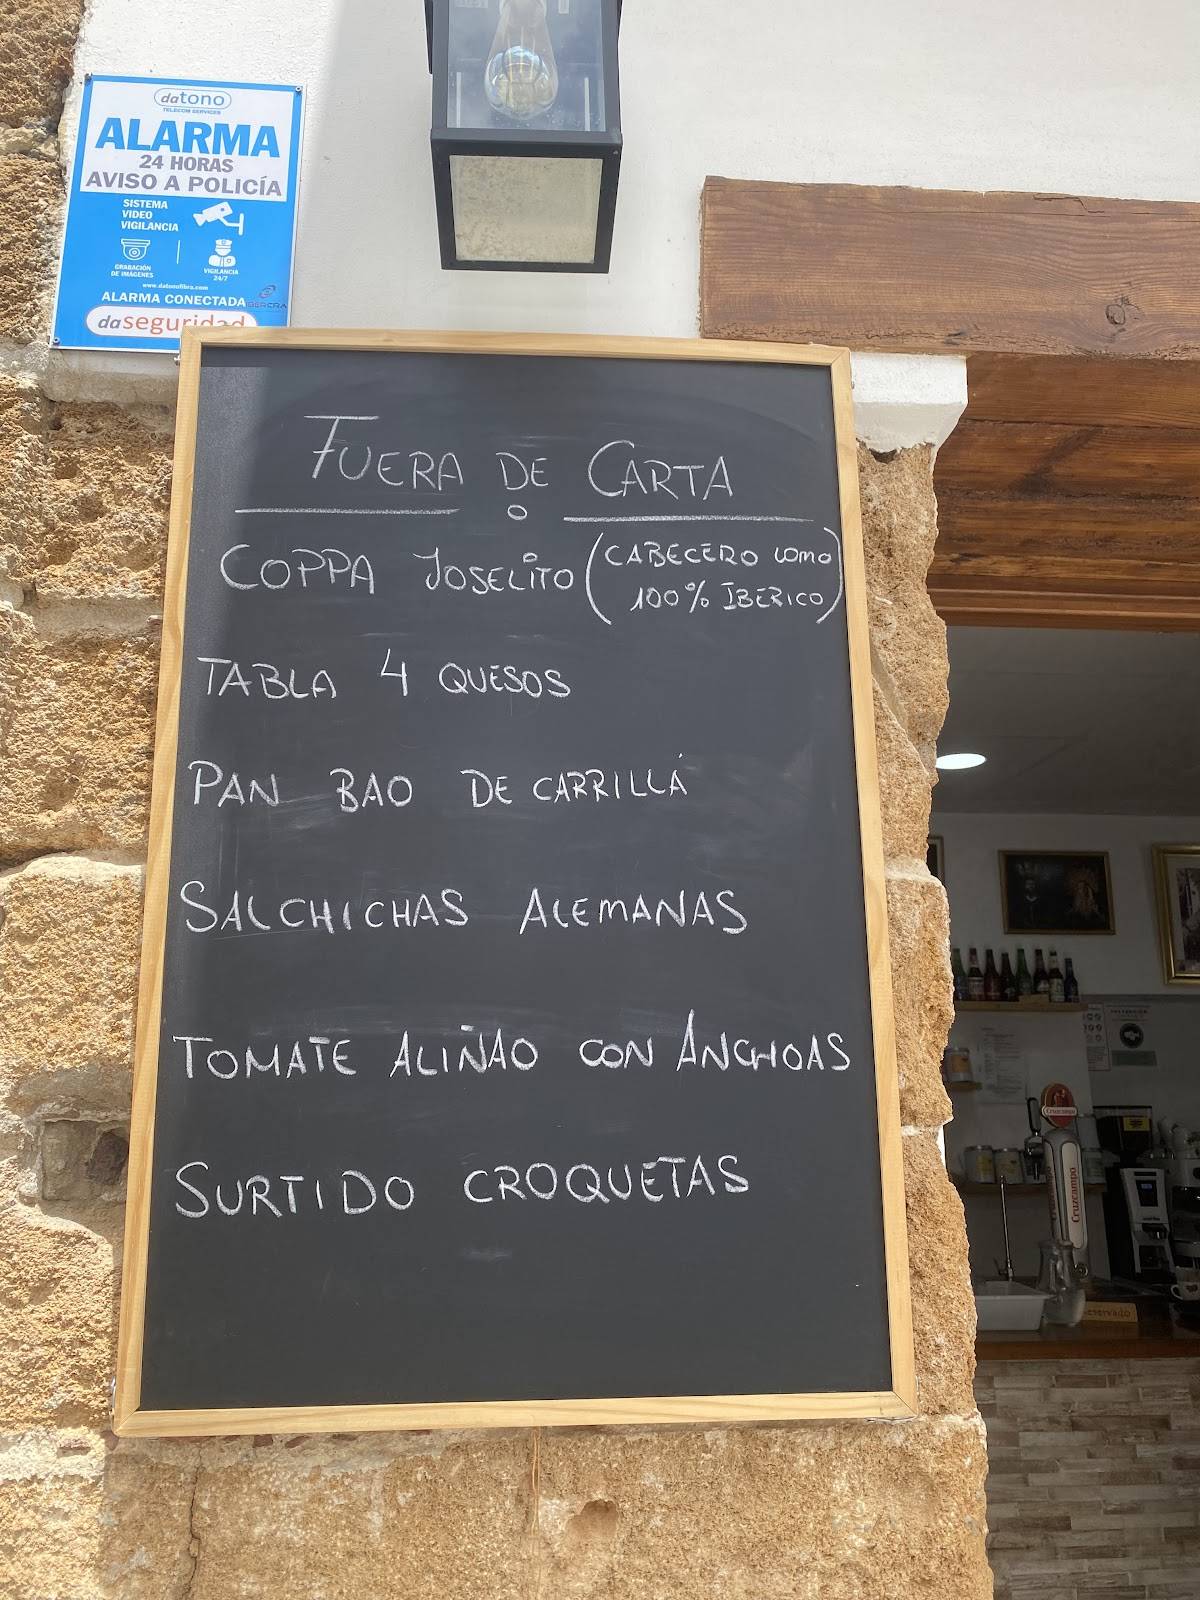 datono
TELECOM SERVICES
ALARMA
24 HORAS
AVISO A POLICÍA
SISTEMA
VIDEO
VIGILANCIA
GRABACIÓN
DE IMÁGENES
VIGILANCIA
24/7
www.datonofibra.com
ALARMA CONECTADA
IBERCRA
daseguridad
FUERA DE CARTA
COPPA JOSELITO (CABECERO LOMO
100% IBERICO)
TABLA 4 QUESOS
PAN BAO DE CARRILLÁ
SALCHICHAS ALEMANAS
TOMATE ALIÑAO CON ANCHOAS
SURTIDO CROQUETAS
Cruzcampo
Cruzcampo
Reservado